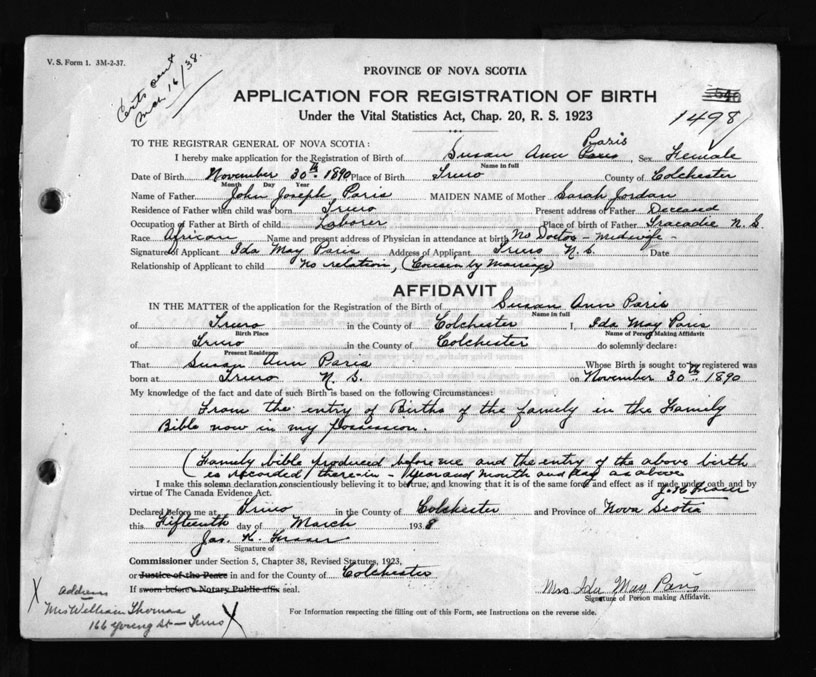 V. S. Form 1. 3M-2-37.
Certs sent
Mch 16/38.
PROVINCE OF NOVA SCOTIA
APPLICATION FOR REGISTRATION OF BIRTH
Under the Vital Statistics Act, Chap. 20, R. S. 1923
1498
TO THE REGISTRAR GENERAL OF NOVA SCOTIA:
Paris
I hereby make application for the Registration of Birth of Susan Ann Paris, Sex Female
Name in full
Date of Birth November 30th 1890 Place of Birth Truro County of Colchester
Month Day Year
Name of Father John Joseph Paris MAIDEN NAME of Mother Sarah Jordan
Residence of Father when child was born Truro Present address of Father Deceased
Occupation of Father at Birth of child Laborer Place of birth of Father Tracadie N. S.
Race African Name and present address of Physician in attendance at birth No Doctor - Midwife -
Signature of Applicant Ida May Paris Address of Applicant Truro N. S. Date
Relationship of Applicant to child No relation, (Cousin by Marriage)
AFFIDAVIT
IN THE MATTER of the application for the Registration of the Birth of Susan Ann Paris
Name in full
of Truro in the County of Colchester I, Ida May Paris
Birth Place Name of Person Making Affidavit
of Truro in the County of Colchester do solemnly declare:
Present Residence
That Susan Ann Paris Whose Birth is sought to be registered was
born at Truro N. S. on November 30th 1890
My knowledge of the fact and date of such Birth is based on the following Circumstances:
From the entry of Births of the family in the Family
Bible now in my possession.
(Family bible produced before me and the entry of the above birth
is recorded therein - Year and month and day as above
I make this solemn declaration conscientiously believing it to be true, and knowing that it is of the same force and effect as if made under oath and by
virtue of The Canada Evidence Act.
Declared Before me at Truro in the County of Colchester and Province of Nova Scotia
this Fifteenth day of March 1938
Jas. K. Fraser
Signature of
Commissioner under Section 5, Chapter 38, Revised Statutes, 1923,
or Justice of the Peace in and for the County of Colchester
If sworn before a Notary Public affix seal.
Mrs Ida May Paris
Signature of Person making Affidavit.
For Information respecting the filling out of this Form, see Instructions on the reverse side.
X address
Mrs William Thomas
166 Young St - Truro X